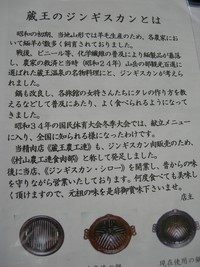 蔵王のジンギスカンとは
昭和の初期、当地山形では羊毛生産のため、各農家に
於いて緬羊が数多く飼育されておりました。
戦後、ビニール等、化学繊維の普及により緬羊が萎塞
し、農家の救済と当時（昭和２４年）山岳の部観光百選に
選ばれた蔵王温泉の名物料理にと、ジンギスカンが考えら
れました。
鍋も改良し、各旅館の女将さんたちにタレの作り方を教
えるなどして普及にあたり、よく食べられるようになって
きました。
昭和３４年の国民体育大会冬季大会では、献立メニュー
に入り、全国に知られる様になったわけです。
当精肉店（蔵王農工連）も、ジンギスカン肉販売のため、
《村山農工連食肉部》と称して発足しました。
後に当店、《ジンギスカン・シロー》を開業し、昔からの味
を守りながら営業いたしております。何度食べても美味し
く頂けますので、元祖の味を是非御賞味下さいませ。
店主
現在使用の鍋